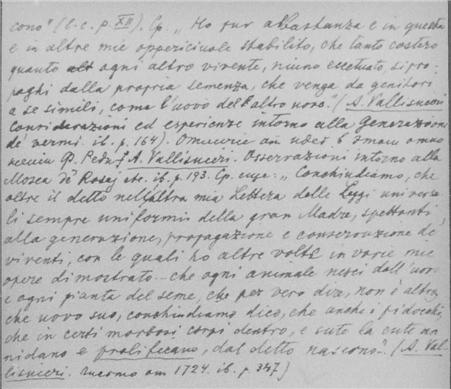 cono" (l. c. p. XII). Ср. „Ho pur abbastanza e in questa
e in altre mie oppericciuole stabilito, che tanto costoro
quanto ogni altro vivente, niuno eccettuato, si pro-
paghi dalla propria semenza, che venga da genitori
a se simili, come l'uovo dell'altro uovo. (A. Vallisneri
Considerazioni ed esperienze intorno alla Generazione
de' vermi ib. p. 164). Отличие от идей в этом
A. Vallisneri. Osservazioni intorno alla
Mosca de' Rosaj etc. ib. p. 193. Ср. еще: „Conchiudiamo, che
oltre il detto nell'altra mia Lettera dalle Leggi univerza-
li sempre uniformi della gran Madre, spettanti
alla generazione, propagazione e conservazione de'
viventi, con le quali ho altre volte in varie mie
opere dimostrato – che ogni animale nesci dall'uovo
e ogni pianta del seme, che per vero dire, non è altro,
che uovo suo, conchiudiamo dico, che anche i pidocchi,
che in certi morbosi corpi dentro, e sute la cute an-
nidano e prolificano, dal detto nascono". (A. Val-
lisneri. 1724. ib. p. 347)